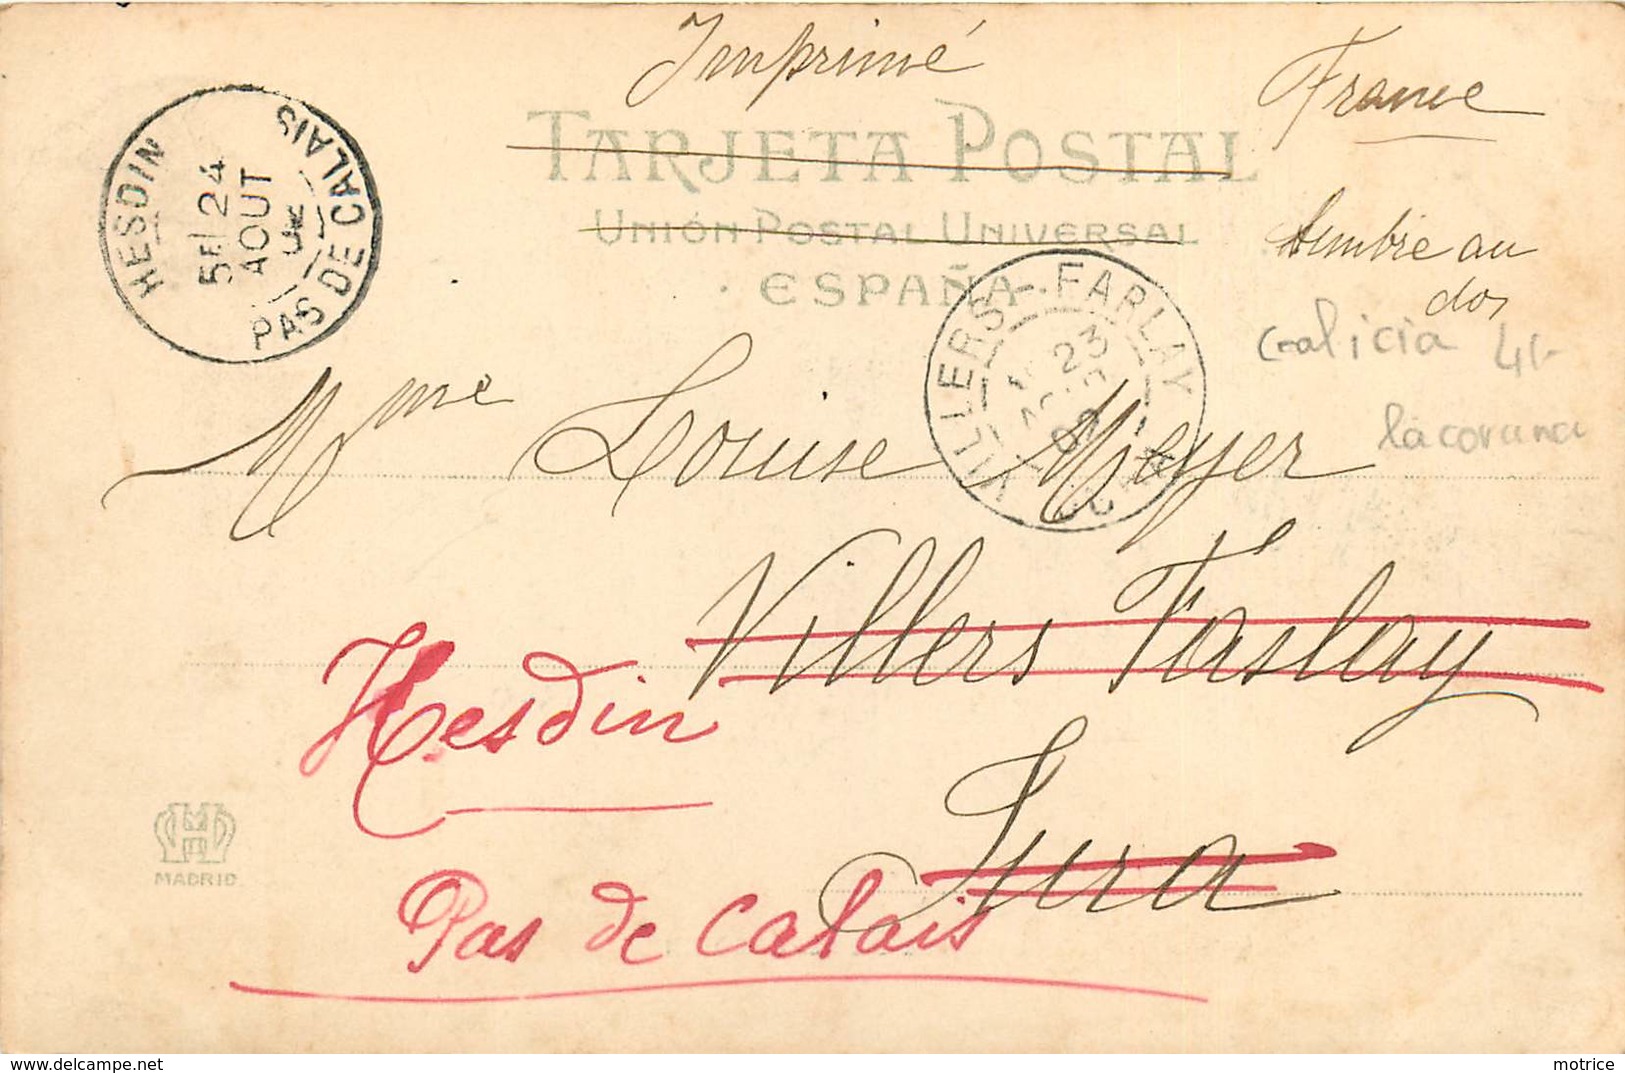 Imprimé
France
TARJETA POSTAL
UNIÓN POSTAL UNIVERSAL
ESPAÑA
timbre au
dos
HESDIN
5E 24
AOUT
PAS DE CALAIS
VILLERS-FARLAY
23
JURA
Galicia
la coruna
Mme Louise Meyer
Villers Farlay
Jura
Hesdin
Pas de Calais
MADRID
motrice